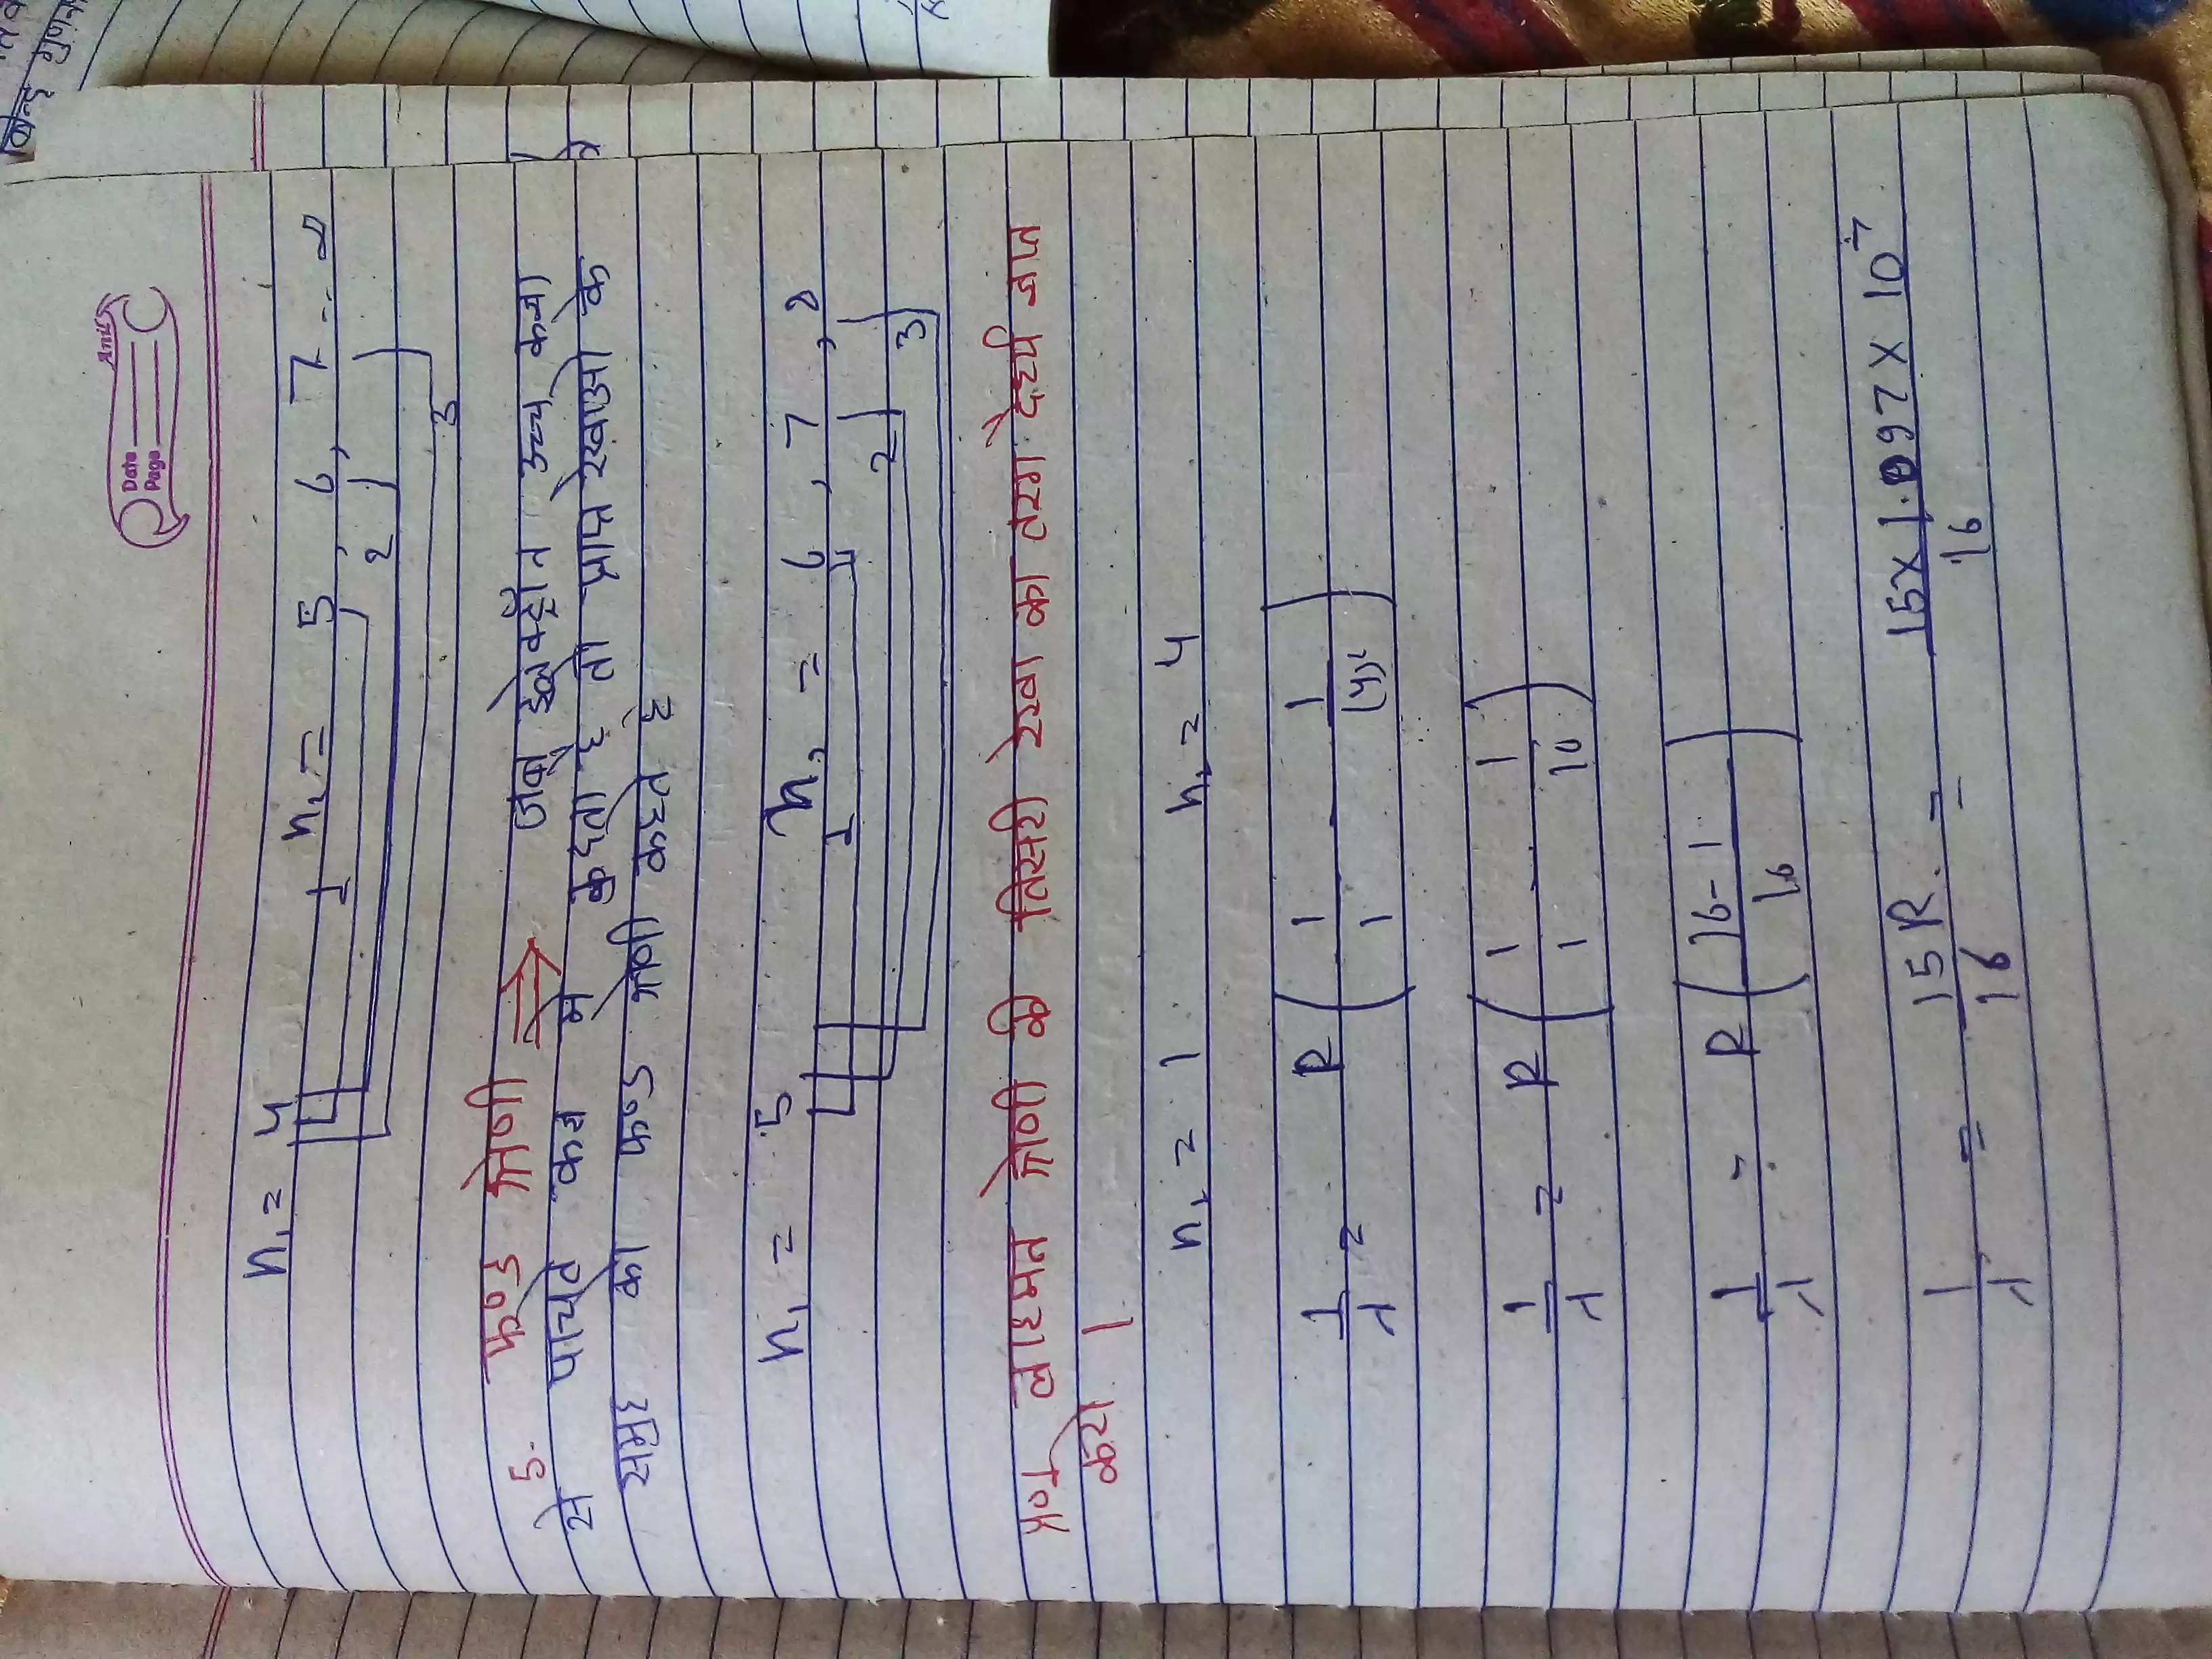 Anil
Date
Page
n₁ = 4 n₂ = 5, 6, 7 - - ∞
1 2 3
5. फण्ड श्रेणी ⇒ जब इलेक्ट्रॉन उच्च कक्षा
से पाचवे कक्ष मे कुदता है तो प्राप्त रेखाओ के
समुह को फण्ड श्रेणी कहते है
n₁ = 5 n₂ = 6, 7, 8
1 2 3
लाइमन श्रेणी की तिसरी रेखा का तरंग देर्ध्य ज्ञात
करो।
n₁ = 1 n₂ = 4
1/λ = R (1/1 - 1/(4)²)
1/λ = R (1/1 - 1/16)
1/λ = R (16-1/16)
1/λ = 15R/16 = 15 × 1.097 × 10⁷/16